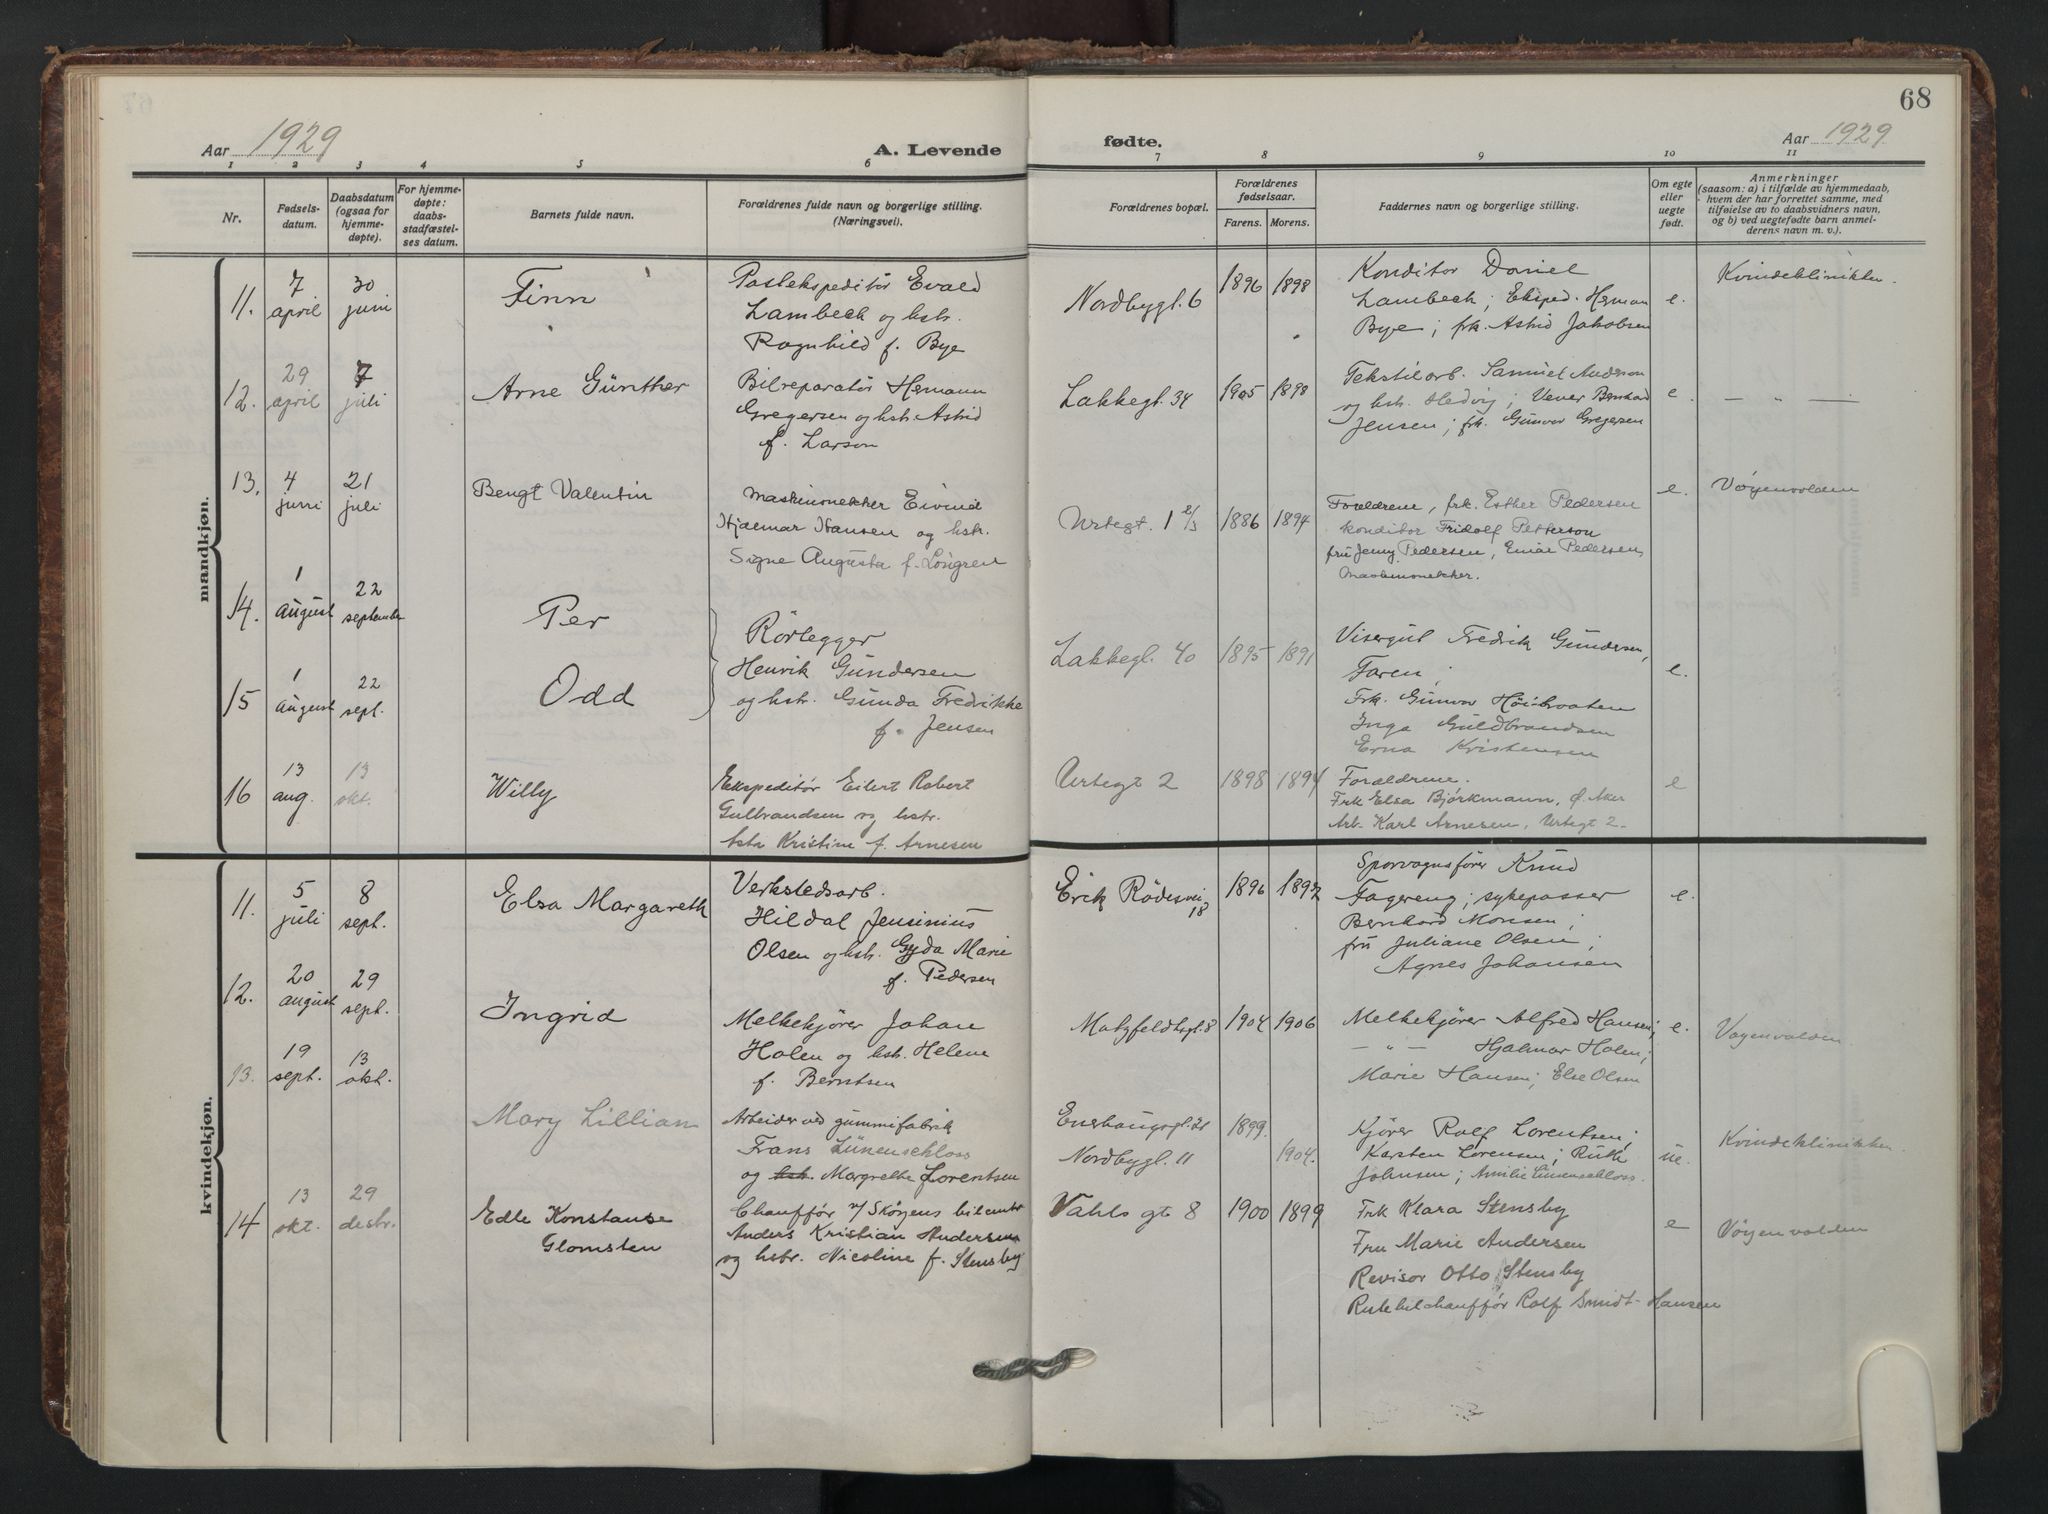 68
Aar 1929
A. Levende
fødte.
Aar 1929
1 2 3 4 5 6 7 8 9 10 11
Nr.
Fødsels-
datum.
Daabsdatum
(ogsaa for
hjemme-
døpte).
For hjemme-
døpte:
daabs-
stadfæstel-
ses datum.
Barnets fulde navn.
Forældrenes fulde navn og borgerlige stilling.
(Næringsvei).
Forældrenes bopæl.
Forældrenes
fødselsaar.
Farens. Morens.
Faddernes navn og borgerlige stilling.
Om egte
eller
uegte
født.
Anmerkninger
(saasom: a) i tilfælde av hjemmedaab,
hvem der har forrettet samme, med
tilføielse av to daabsvidners navn,
og b) ved uegtefødte barn anmel-
derens navn m. v.).
mandkjøn.
11.
7
april
30
juni
Finn
Postekspeditör Evald
Lambech og hstr.
Ragnhild f. Bye
Nordbygt. 6
1896 1898
Konditor Daniel
Lambech; Eksped. Herman
Bye; frk. Astrid Jakobsen
e.
Kvindeklinikken
12.
29
april
7
juli
Arne Günther
Bilreparatör Hemann
Gregersen og hstr. Astrid
f. Larson
Lakkegt. 34
1905 1898
Tekstilarb. Samuel Anderson
og hstr. Hedvig; Vever Bernhard
Jensen; frk. Gunvor Gregersen
e.
— " —
13.
4
juni
21
juli
Bengt Valentin
Maskinsnekker Eivind
Hjalmar Hansen og hstr.
Signe Augusta f. Löngren
Urtegt. 1 2/3
1886 1894
Foreldrene, frk. Esther Pedersen
konditor Fridolf Petterson
fru Jenny Pedersen, Einar Pedersen,
Maskinsnekker.
e.
Vøyenvolden
14.
1
august
22
september
Per
15
1
august
22
sept.
Odd
Rörlegger
Henrik Gundersen
og hstr. Gunda Fredrikke
f. Jensen
Lakkegt. 40
1895 1891
Visergut Fredrik Gundersen,
Faren;
Frk. Gunvor Höibraaten
Inga Guldbrandsen
Erna Kristensen
e.
16
13
aug.
13
okt.
Willy
Ekspeditør Eilert Robert
Gulbrandsen og hstr.
Asta Kristine f. Arnesen
Urtegt 2
1898 1894
Foreldrene.
Frk Elsa Björkmann, Ø. Aker
Arb. Karl Arnesen, Urtegt 2.
e
kvindekjøn.
11.
5
juli
8
sept.
Elsa Margareth
Verkstedsarb.
Hildal Jensinius
Olsen og hstr. Gyda Marie
f. Pedersen
Erik Rödesvei
18
1896 1892
Sporvognsförer Knud
Fagereng; sykepasser
Bernhard Monsen;
fru Juliane Olsen;
Agnes Johansen
e.
12.
20
august
29
sept.
Ingrid
Melkekjörer Johan
Holen og hstr. Helene
f. Berntsen
Matzfeldtsgt. 8
1904 1906
Melkekjörer Alfred Hansen;
— " — Hjalmar Holen;
Marie Hansen; Else Olsen
e.
Vøyenvolden
13.
19
sept.
13
okt.
Mary Lillian
Arbeider ved gummifabrik
Frans Lünenschloss
og hstr. Margrethe Lorentsen
Enerhaugsgt. 21
Nordbygt. 11
1899.
1904.
Kjörer Rolf Lorentsen;
Karsten Lorensen; Ruth
Johnsen; Amilie Lünenschloss.
ue.
Kvindeklinikken
14
13
okt.
29
desbr.
Edle Konstanse
Glomsten
Chauffør v/ Skøyens bilcentr.
Anders Kristian Andersen
og hstr. Nicoline f. Stensby
Vahls gt 8
1900 1899
Frk Klara Stensby
Fru Marie Andersen
Revisor Otto Stensby
Rutebilchauffør Rolf Smidt-Hansen
e
Vøyenvolden